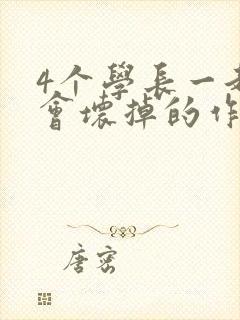 4个學長一
會壞掉的作
唐密